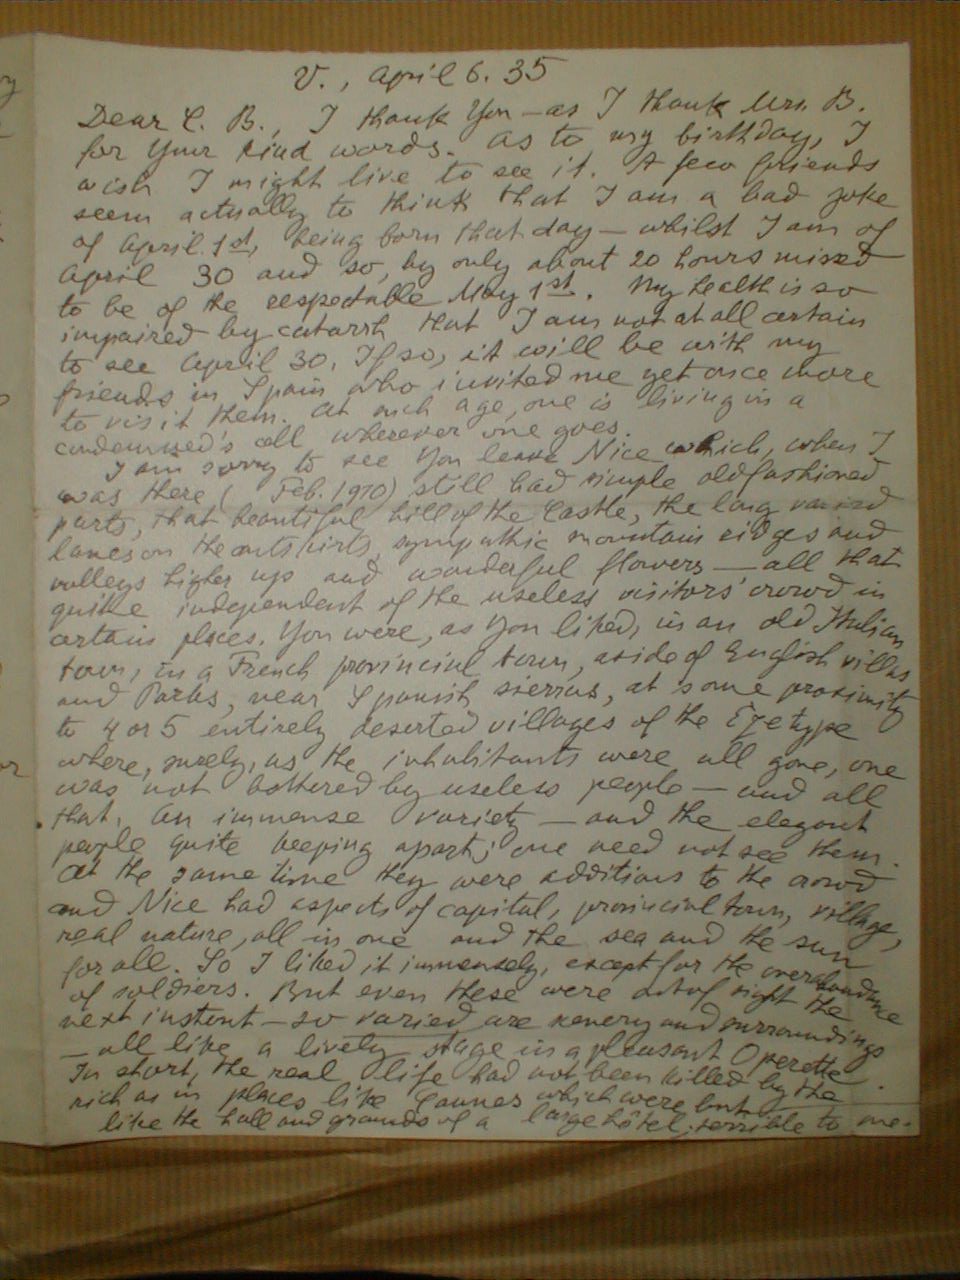 V., April 6. 35
Dear C. B., I thank You — as I thank Mrs. B.
for Your kind words. As to my birthday, I
wish I might live to see it. A few friends
seem actually to think that I am a bad joke
of April 1st, being born that day — whilst I am of
April 30 and so, by only about 20 hours missed
to be of the respectable May 1st. My health is so
impaired by catarrh that I am not at all certain
to see April 30. If so, it will be with my
friends in Spain who invited me yet once more
to visit them. At such age, one is living in a
condemned's cell wherever one goes.
I am sorry to see You leave Nice which, when I
was there (Feb. 1910) still had simple oldfashioned
parts, that beautiful hill of the Castle, the long varied
lanes on the outskirts, sympathic mountain ridges and
valleys higher up and wonderful flowers — all that
quite independent of the useless visitors' crowd in
certain places. You were, as You liked, in an old Italian
town, in a French provincial town, aside of English villas
and Parks, near Spanish sierras, at some proximity
to 4 or 5 entirely deserted villages of the Eze type
where, surely, as the inhabitants were all gone, one
was not bothered by useless people — and all
that. An immense variety — and the elegant
people quite keeping apart; one need not see them.
At the same time they were additions to the crowd
and Nice had aspects of capital, provincial town, village,
real nature, all in one and the sea and the sun
for all. So I liked it immensely, except for the overabundance
of soldiers. But even these were out of sight the
next instant — so varied are scenery and surroundings
— all like a lively stage in a pleasant Operette.
In short, the real life had not been killed by the
rich as in places like Cannes which were but
like the hall and grounds of a large hôtel, terrible to me.